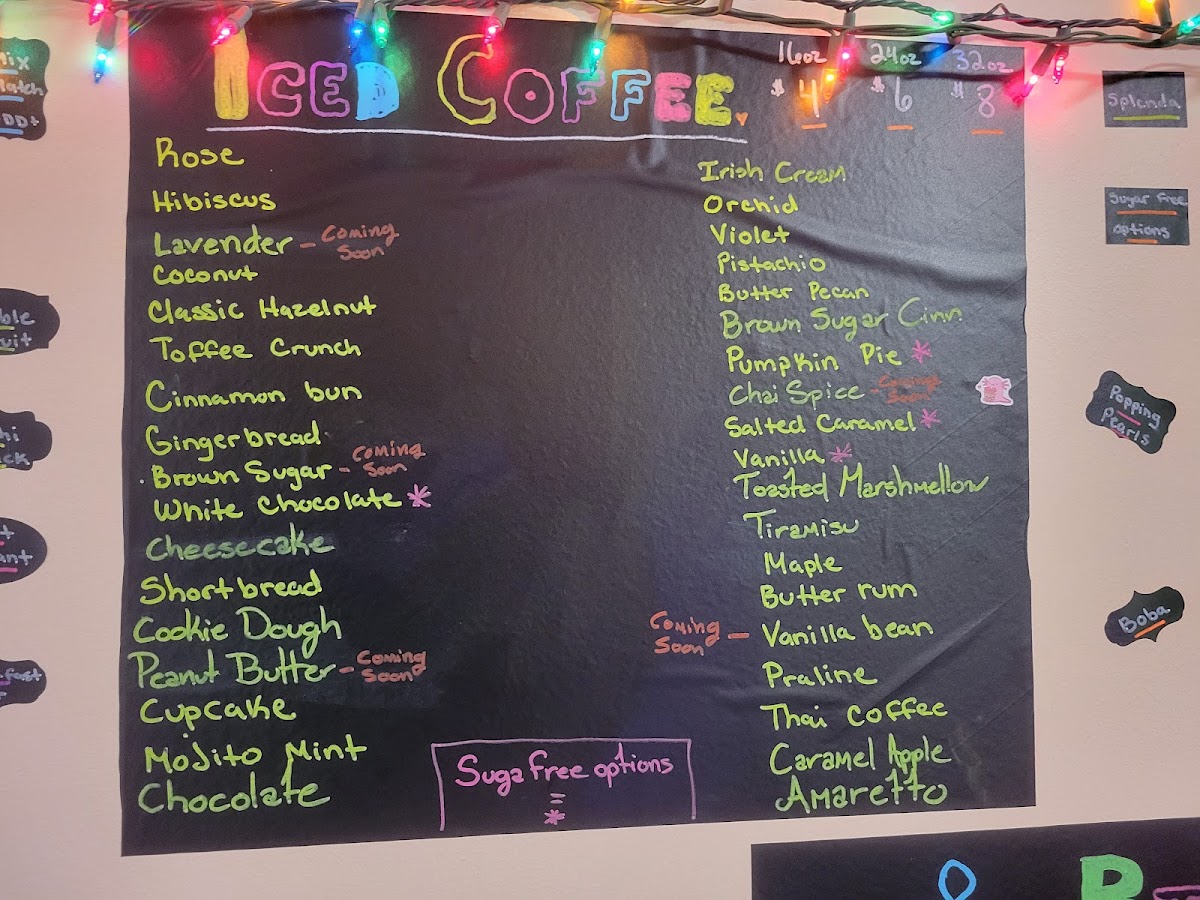 Iced Coffee.
16oz 24oz 32oz
$4 $6 $8
Rose
Hibiscus
Lavender - Coming Soon
Coconut
Classic Hazelnut
Toffee Crunch
Cinnamon bun
Gingerbread
Brown Sugar - Coming Soon
White Chocolate *
Cheesecake
Shortbread
Cookie Dough
Peanut Butter - Coming Soon
Cupcake
Mojito Mint
Chocolate
Irish Cream
Orchid
Violet
Pistachio
Butter Pecan
Brown Sugar Cinn
Pumpkin Pie *
Chai Spice - Coming Soon
Salted Caramel *
Vanilla *
Toasted Marshmellow
Tiramisu
Maple
Butter rum
Coming Soon - Vanilla bean
Praline
Thai Coffee
Caramel Apple
Amaretto
Suga free options
=
*
Splenda
Sugar Free
options
Popping
Pearls
Boba